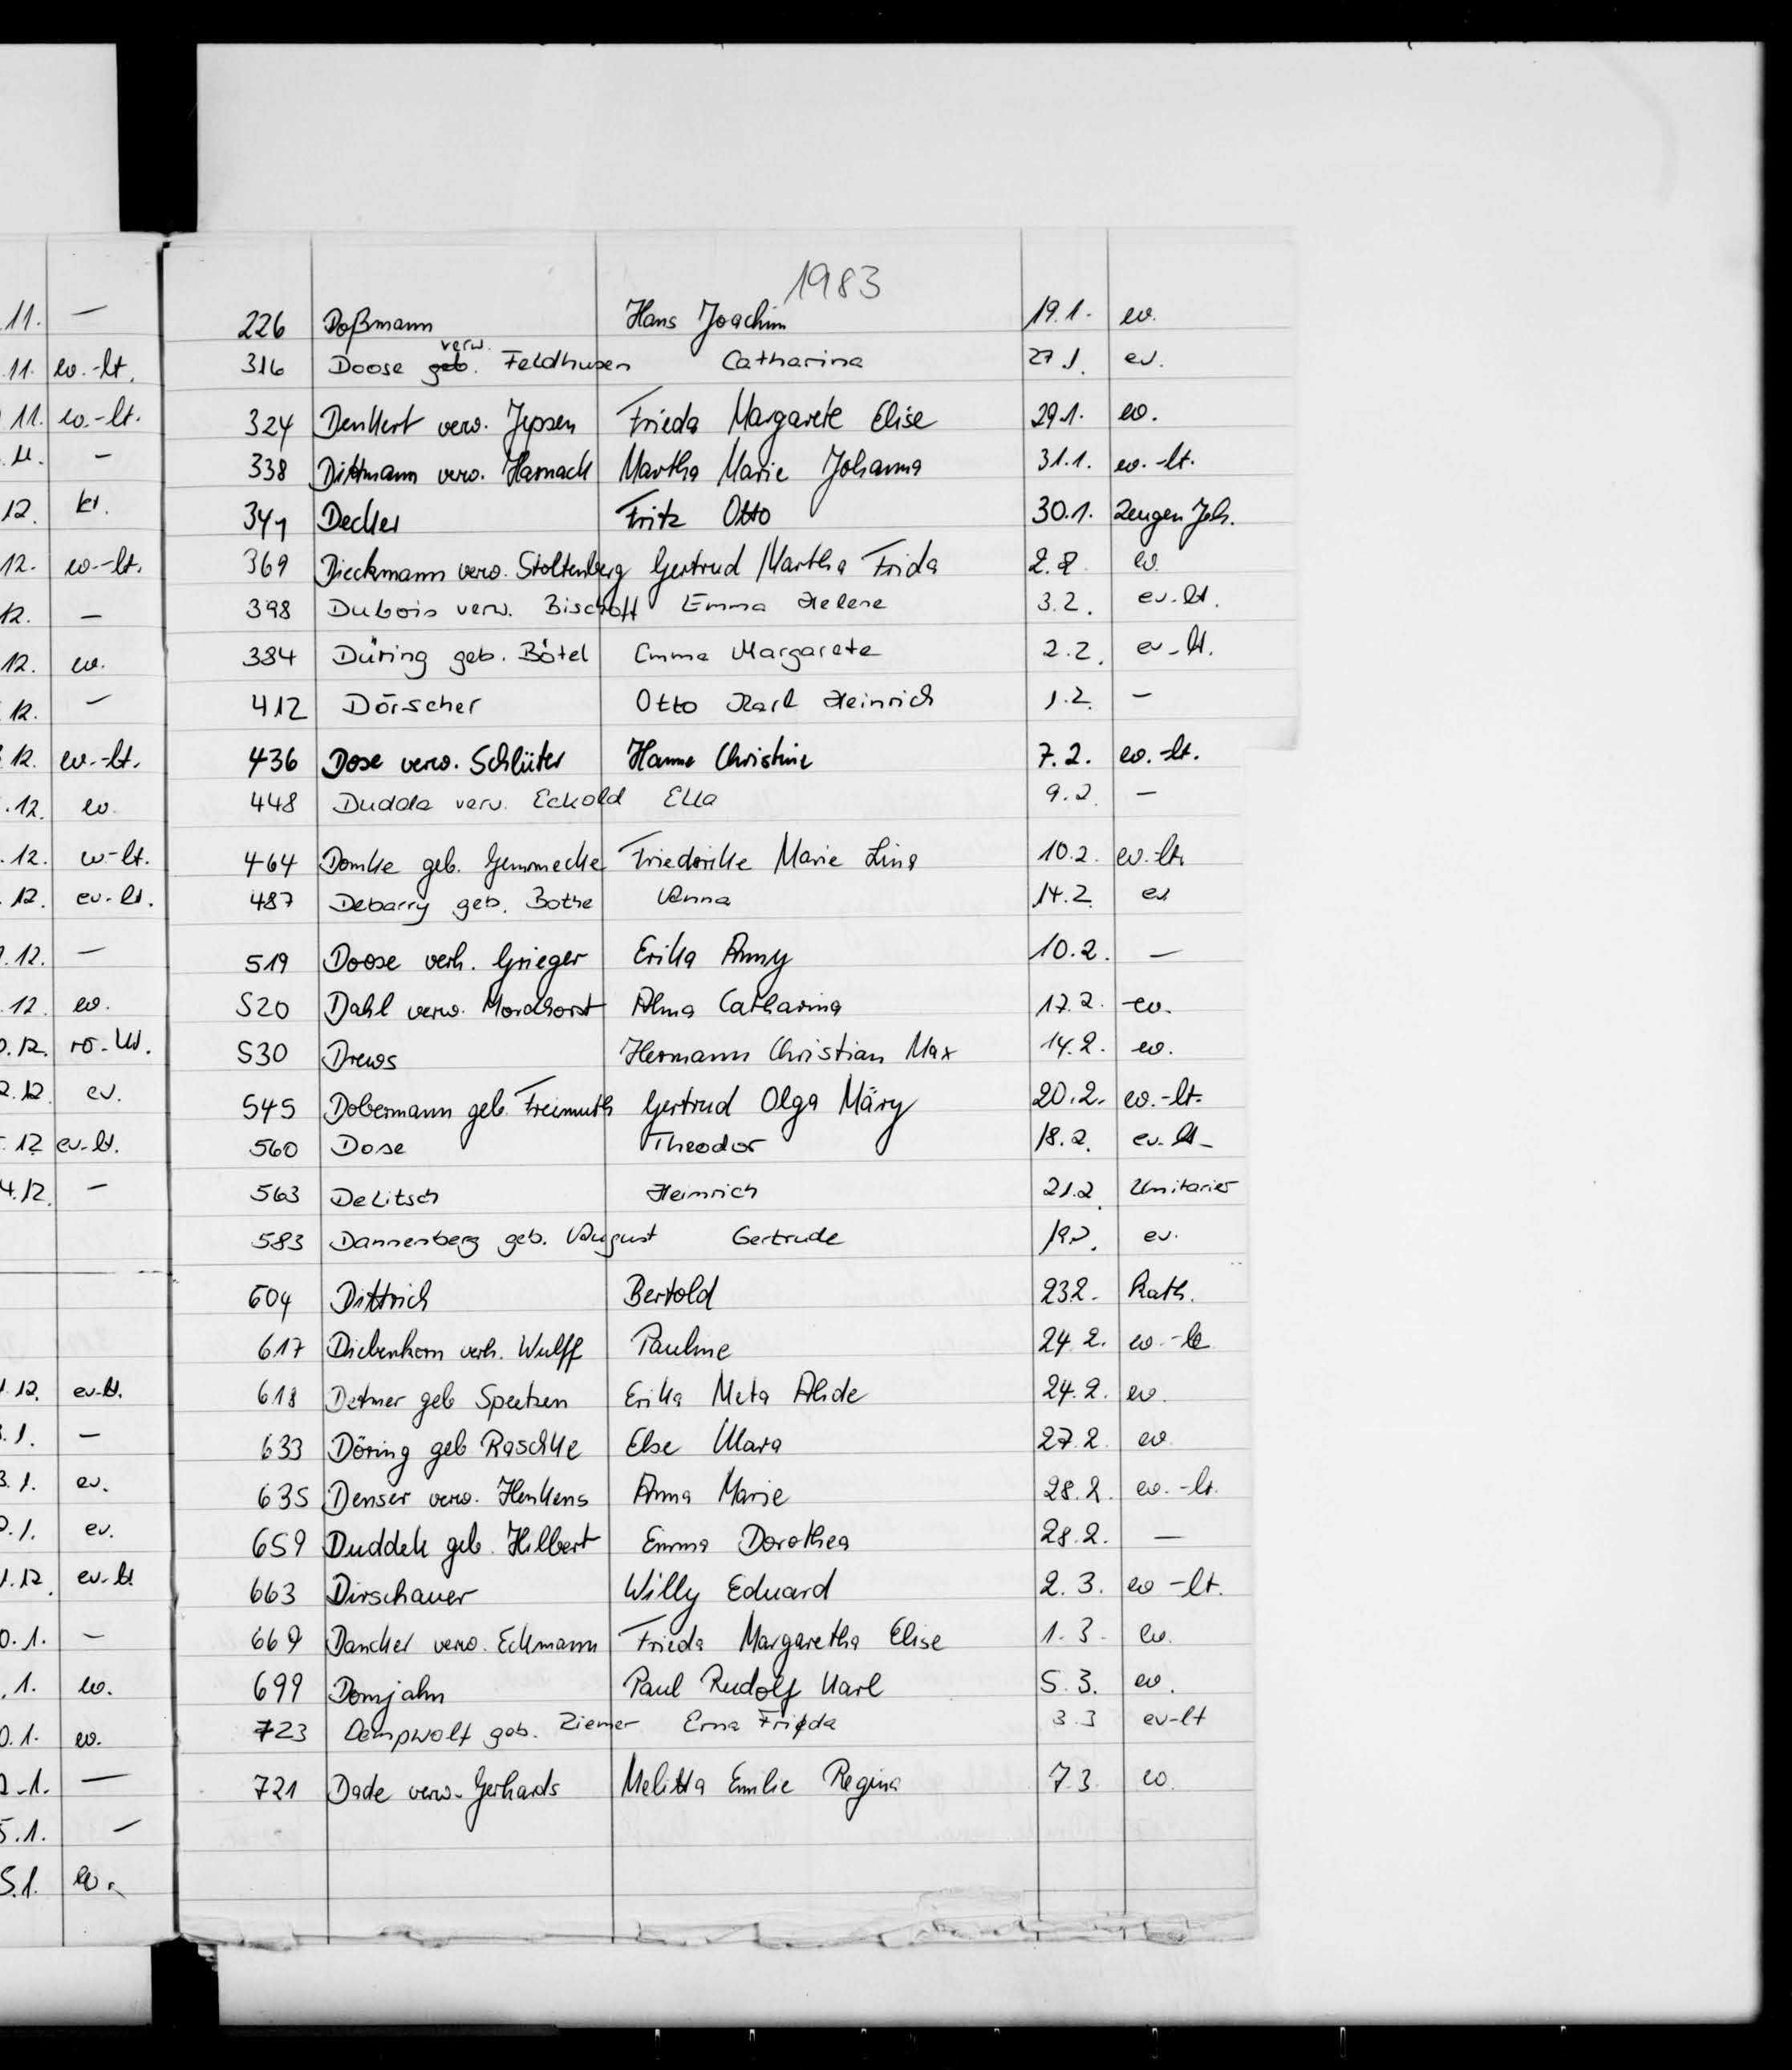 11. —
11. ev.-lt.
11. ev.-lt.
11. -
12. kt.
12. ev.-lt.
12. —
12. ev.
12. —
12. ev.-lt.
.12. ev.
.12. ev-lt.
12. ev-lt.
.12. —
.12. ev.
.12. rö-kt.
2.12. ev.
.12 ev-lt.
4.12. —
.12. ev-lt.
.1. —
3.1. ev.
.1. ev.
.12. ev-lt
0.1. —
.1. ev.
0.1. ev.
.1. —
5.1. —
5.1. ev.
1983
226 Doßmann Hans Joachim 19.1. ev.
316 Doose geb. verw. Feldhusen Catharina 27.1. ev.
324 Denkert verw. Jepsen Frieda Margarete Elise 29.1. ev.
338 Dittmann verw. Harnack Martha Marie Johanna 31.1. ev.-lt.
341 Decker Fritz Otto 30.1. Zeugen Jeh.
369 Dieckmann verw. Stoltenberg Gertrud Martha Frida 2.2. ev.
398 Dubois verw. Bischoff Emma Helene 3.2. ev.lt.
384 Düring geb. Bötel Emma Margarete 2.2. ev-lt.
412 Dörscher Otto Karl Heinrich 1.2. —
436 Dose verw. Schlüter Hanne Christine 7.2. ev.-lt.
448 Dudda verw. Eckold Ella 9.2. —
464 Domke geb. Gemmecke Friederike Marie Lina 10.2. ev.-lt.
487 Debarry geb. Bothe Anna 14.2. ev
519 Doose verh. Grieger Erika Anny 10.2. —
520 Dahl verw. Mordhorst Alma Catharina 17.2. ev.
530 Drews Hermann Christian Max 14.2. ev.
545 Dobermann geb. Freimuth Gertrud Olga Märy 20.2. ev.-lt.
560 Dose Theodor 18.2. ev.lt-
563 Delitsch Heinrich 21.2. Unitarier
583 Dannenberg geb. August Gertrude 19.2. ev.
604 Dittrich Bertold 23.2. Kath.
617 Diebenkorn verh. Wulff Pauline 24.2. ev.-lt
618 Detmer geb Speetzen Erika Meta Alide 24.2. ev.
633 Döring geb Raschke Else Klara 27.2. ev.
635 Denser verw. Henkens Anna Marie 28.2. ev.-lt.
659 Duddek geb. Hilbert Emma Dorothea 28.2. —
663 Dirschauer Willy Eduard 2.3. ev-lt.
669 Dancker verw. Eckmann Frieda Margaretha Elise 1.3. ev.
699 Domjahn Paul Rudolf Karl 5.3. ev.
723 Dempwolf geb. Ziemer Erna Frida 3.3 ev-lt
721 Dade verw. Gerhards Melitta Emilie Regina 7.3. ev.